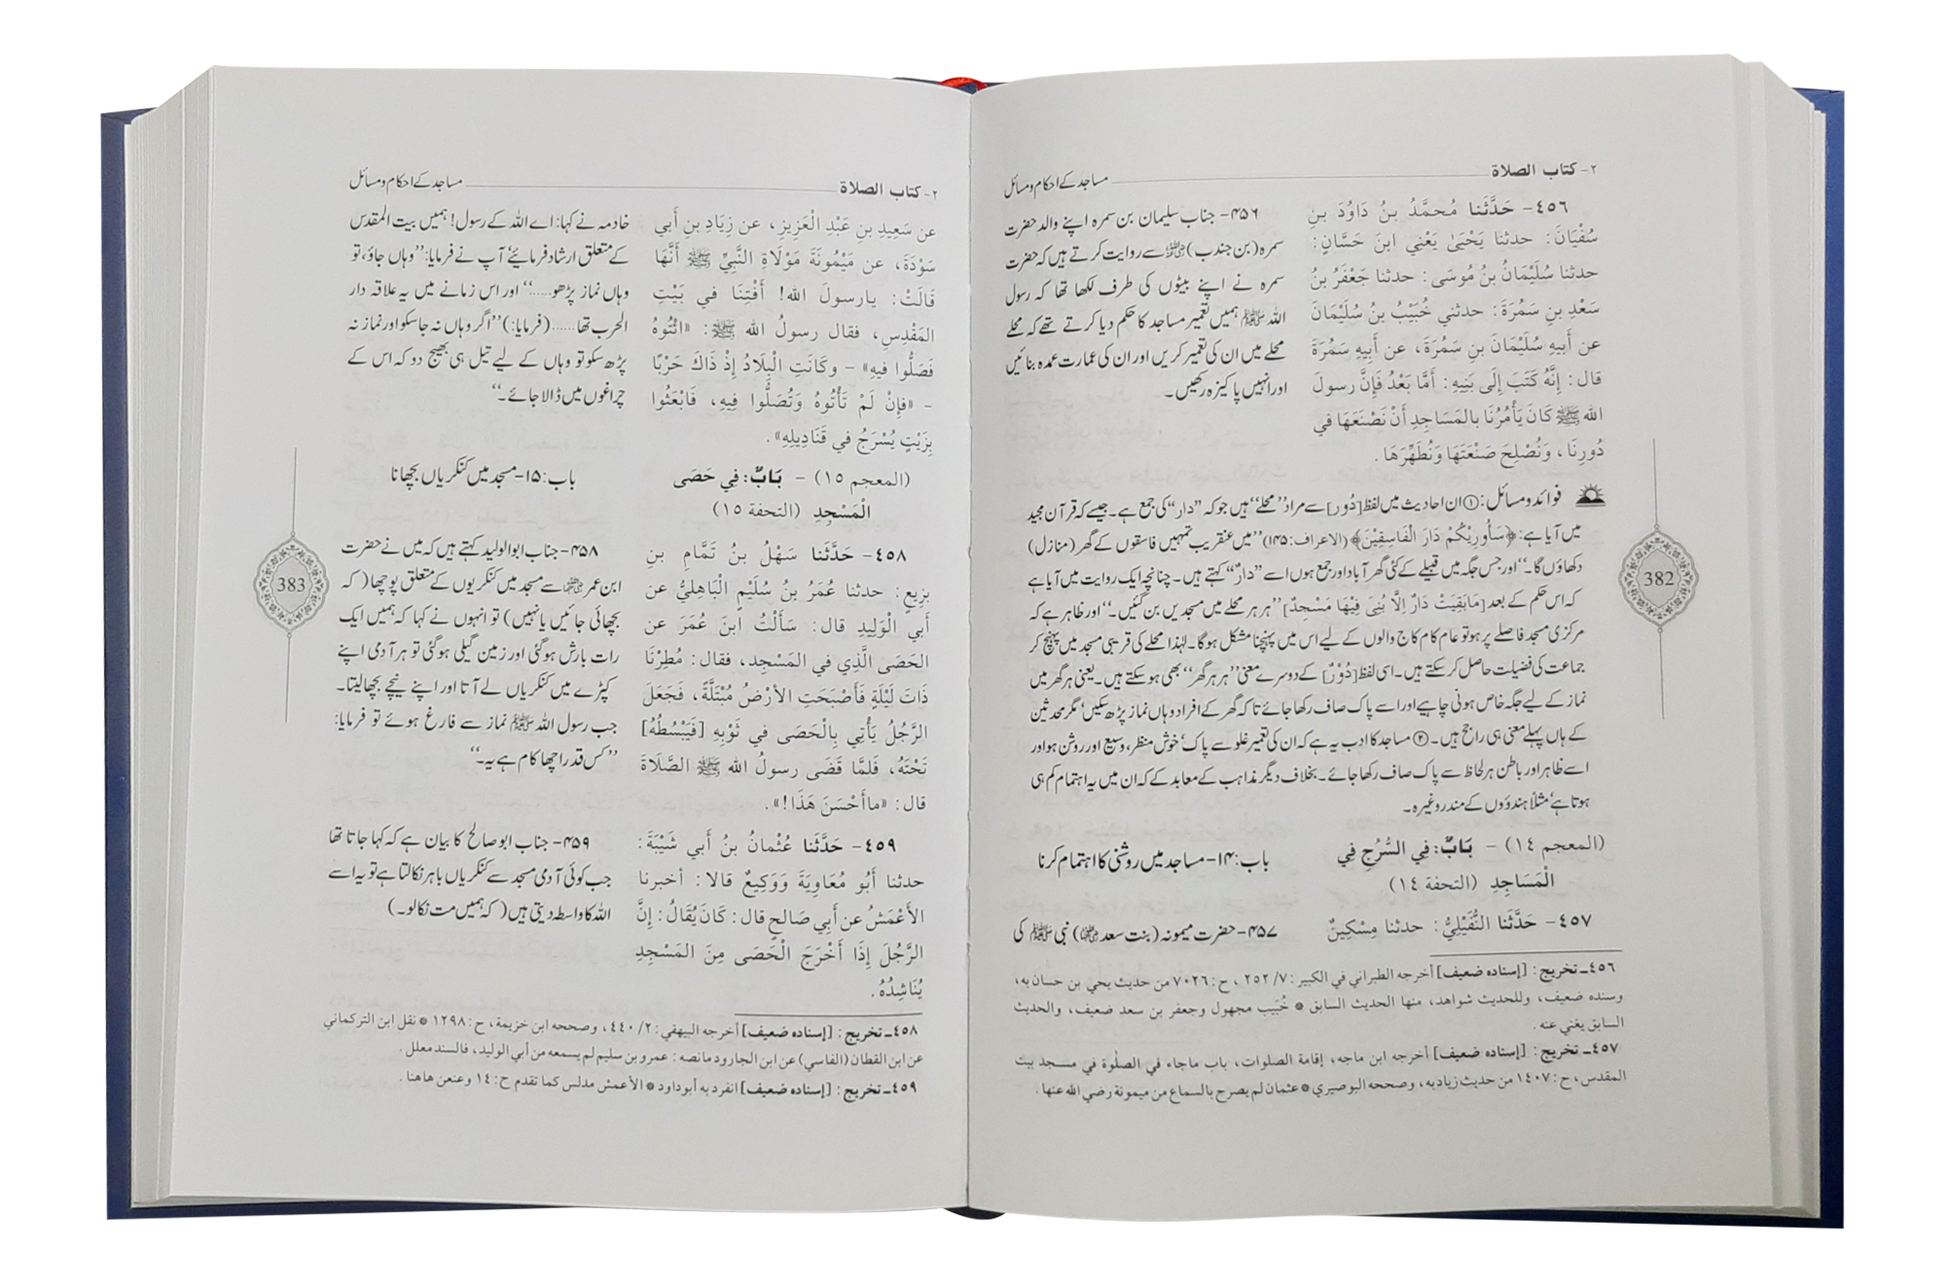 ٢- كتاب الصلاة
مساجد کے احکام و مسائل
٤٥٦- حَدَّثَنا مُحمَّدُ بنُ دَاوُدَ بنِ
سُفْيَانَ: حدثنا يَحْيَىٰ يَعْنِي ابنَ حَسَّانٍ:
حدثنا سُلَيْمَانُ بنُ مُوسَى: حدثنا جَعْفَرُ بنُ
سَعْدِ بنِ سَمُرَةَ: حدثني خُبَيْبُ بنُ سُلَيْمَانَ
عن أَبِيهِ سُلَيْمَانَ بنِ سَمُرَةَ، عن أَبِيهِ سَمُرَةَ
قال: إِنَّهُ كَتَبَ إِلَى بَنِيهِ: أَمَّا بَعْدُ فَإِنَّ رسولَ
الله ﷺ كَانَ يَأْمُرُنَا بالمَسَاجِدِ أَنْ نَصْنَعَهَا في
دُورِنَا، وَنُصْلِحَ صَنْعَتَهَا وَنُطَهِّرَهَا.
۴۵۶- جناب سلیمان بن سمرہ اپنے والد حضرت
سمرہ (بن جندب) ؓ سے روایت کرتے ہیں کہ حضرت
سمرہ نے اپنے بیٹوں کی طرف لکھا تھا کہ رسول
اللہ ﷺ ہمیں تعمیر مساجد کا حکم دیا کرتے تھے کہ محلے
محلے میں ان کی تعمیر کریں اور ان کی عمارت عمدہ بنائیں
اور انہیں پاکیزہ رکھیں۔
فوائد و مسائل: ① ان احادیث میں لفظ [دُوْر] سے مراد ”محلے“ ہیں جو کہ ”دار“ کی جمع ہے۔ جیسے کہ قرآن مجید
میں آیا ہے: ﴿سَأُورِيْكُمْ دَارَ الْفَاسِقِيْنَ﴾ (الاعراف:۱۴۵) ”میں عنقریب تمہیں فاسقوں کے گھر (منازل)
دکھاؤں گا۔“ اور جس جگہ میں قبیلے کے کئی گھر آباد اور جمع ہوں اسے ”دارٌ“ کہتے ہیں۔ چنانچہ ایک روایت میں آیا ہے
کہ اس حکم کے بعد [مَابَقِيَتْ دَارٌ اِلَّا بُنِىَ فِيْهَا مَسْجِدٌ] ”ہر ہر محلے میں مسجدیں بن گئیں۔“ اور ظاہر ہے کہ
مرکزی مسجد فاصلے پر ہو تو عام کام کاج والوں کے لیے اس میں پہنچنا مشکل ہوگا۔ لہٰذا محلے کی قریبی مسجد میں پہنچ کر
جماعت کی فضیلت حاصل کر سکتے ہیں۔ اسی لفظ [دُوْرٌ] کے دوسرے معنی ”ہر ہر گھر“ بھی ہو سکتے ہیں۔ یعنی ہر گھر میں
نماز کے لیے جگہ خاص ہونی چاہیے اور اسے پاک صاف رکھا جائے تاکہ گھر کے افراد وہاں نماز پڑھ سکیں‘ مگر محدثین
کے ہاں پہلے معنی ہی راجح ہیں۔ ② مساجد کا ادب یہ ہے کہ ان کی تعمیر غلو سے پاک‘ خوش منظر، وسیع اور روشن ہو اور
اسے ظاہر اور باطن ہر لحاظ سے پاک صاف رکھا جائے۔ بخلاف دیگر مذاہب کے معابد کے کہ ان میں یہ اہتمام کم ہی
ہوتا ہے‘ مثلاً ہندوؤں کے مندر وغیرہ۔
(المعجم ١٤) - بَابٌ: فِي السُّرُجِ فِي
الْمَسَاجِدِ (التحفة ١٤)
باب:۱۴- مساجد میں روشنی کا اہتمام کرنا
٤٥٧- حَدَّثَنا النُّفَيْلِيُّ: حدثنا مِسْكِينٌ
۴۵۷- حضرت میمونہ (بنت سعد ؓ) نبی ﷺ کی
٤٥٦ـ تخريج: [إسناده ضعيف] أخرجه الطبراني في الكبير: ٧/ ٢٥٢، ح: ٧٠٢٦ من حديث يحي بن حسان به،
وسنده ضعيف، وللحديث شواهد، منها الحديث السابق * خُبَيب مجهول وجعفر بن سعد ضعيف، والحديث
السابق يغني عنه.
٤٥٧ـ تخريج: [إسناده ضعيف] أخرجه ابن ماجه، إقامة الصلوات، باب ماجاء في الصلوة في مسجد بيت
المقدس، ح: ١٤٠٧ من حديث زياد به، وصححه البوصيري * عثمان لم يصرح بالسماع من ميمونة رضي الله عنها.
382
٢- كتاب الصلاة
مساجد کے احکام و مسائل
عن سَعِيدِ بنِ عَبْدِ الْعَزِيزِ، عن زِيَادِ بنِ أَبي
سَوْدَةَ، عن مَيْمُونَةَ مَوْلَاةِ النَّبِيِّ ﷺ أَنَّهَا
قَالَتْ: يارسولَ الله! أَفْتِنَا في بَيْتِ
المَقْدِسِ، فقال رسولُ الله ﷺ: «ائْتُوهُ
فَصَلُّوا فيهِ» - وكَانَتِ الْبِلَادُ إِذْ ذَاكَ حَرْبًا
- «فإنْ لَمْ تَأْتُوهُ وَتُصَلُّوا فِيهِ، فَابْعَثُوا
بِزَيْتٍ يُسْرَجُ في قَنَادِيلِهِ».
خادمہ نے کہا: اے اللہ کے رسول! ہمیں بیت المقدس
کے متعلق ارشاد فرمائیے‘ آپ نے فرمایا: ”وہاں جاؤ، تو
وہاں نماز پڑھو.....“ اور اس زمانے میں یہ علاقہ دار
الحرب تھا ...... (فرمایا:) ”اگر وہاں نہ جا سکو اور نماز نہ
پڑھ سکو تو وہاں کے لیے تیل ہی بھیج دو کہ اس کے
چراغوں میں ڈالا جائے۔“
(المعجم ١٥) - بَابٌ: فِي حَصَى
الْمَسْجِدِ (التحفة ١٥)
باب:۱۵- مسجد میں کنکریاں بچھانا
٤٥٨- حَدَّثَنا سَهْلُ بنُ تَمَّامِ بنِ
بَزِيعٍ: حدثنا عُمَرُ بنُ سُلَيْمٍ الْبَاهِليُّ عن
أَبي الْوَلِيدِ قال: سَأَلْتُ ابنَ عُمَرَ عن
الحَصَى الَّذِي في المَسْجِدِ، فقال: مُطِرْنَا
ذَاتَ لَيْلَةٍ فَأَصْبَحَتِ الأرْضُ مُبْتَلَّةً، فَجَعَلَ
الرَّجُلُ يَأْتِي بِالْحَصَى في ثَوْبِهِ [فَيَبْسُطُهُ]
تَحْتَهُ، فَلمَّا قَضَى رسولُ الله ﷺ الصَّلَاةَ
قال: «ماأَحْسَنَ هَذَا!».
۴۵۸- جناب ابو الولید کہتے ہیں کہ میں نے حضرت
ابن عمر ؓ سے مسجد میں کنکریوں کے متعلق پوچھا (کہ
بچھائی جائیں یا نہیں) تو انہوں نے کہا کہ ہمیں ایک
رات بارش ہو گئی اور زمین گیلی ہو گئی تو ہر آدمی اپنے
کپڑے میں کنکریاں لے آتا اور اپنے نیچے بچھا لیتا۔
جب رسول اللہ ﷺ نماز سے فارغ ہوئے تو فرمایا:
”کس قدر اچھا کام ہے یہ۔“
٤٥٩- حَدَّثَنا عُثْمانُ بنُ أَبي شَيْبَةَ:
حدثنا أَبُو مُعَاوِيَةَ وَوَكِيعٌ قالا: أخبرنا
الأَعْمَشُ عن أَبي صَالحٍ قال: كَانَ يُقَالُ: إنَّ
الرَّجُلَ إِذَا أَخْرَجَ الْحَصَى مِنَ المَسْجِدِ
يُنَاشِدُهُ.
۴۵۹- جناب ابو صالح کا بیان ہے کہ کہا جاتا تھا
جب کوئی آدمی مسجد سے کنکریاں باہر نکالتا ہے تو یہ اسے
اللہ کا واسطہ دیتی ہیں (کہ ہمیں مت نکالو۔)
٤٥٨ـ تخريج: [إسناده ضعيف] أخرجه البيهقي: ٢/ ٤٤٠، وصححه ابن خزيمة، ح: ١٢٩٨ * نقل ابن التركماني
عن ابن القطان (الفاسي) عن ابن الجارود مانصه: عمرو بن سليم لم يسمعه من أبي الوليد، فالسند معلل.
٤٥٩ـ تخريج: [إسناده ضعيف] انفرد به أبوداود * الأعمش مدلس كما تقدم ح: ١٤ وعنعن هاهنا.
383